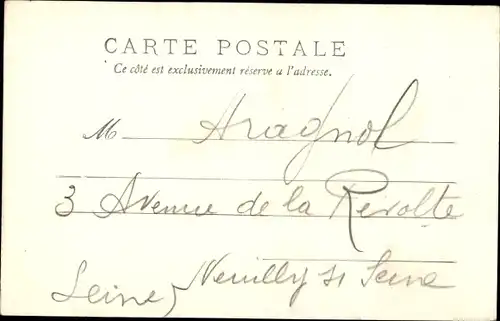 CARTE POSTALE
Ce côté est exclusivement réservé a l'adresse.
M Aragnol
3 Avenue de la Révolte
Neuilly s/ Seine
(Seine)